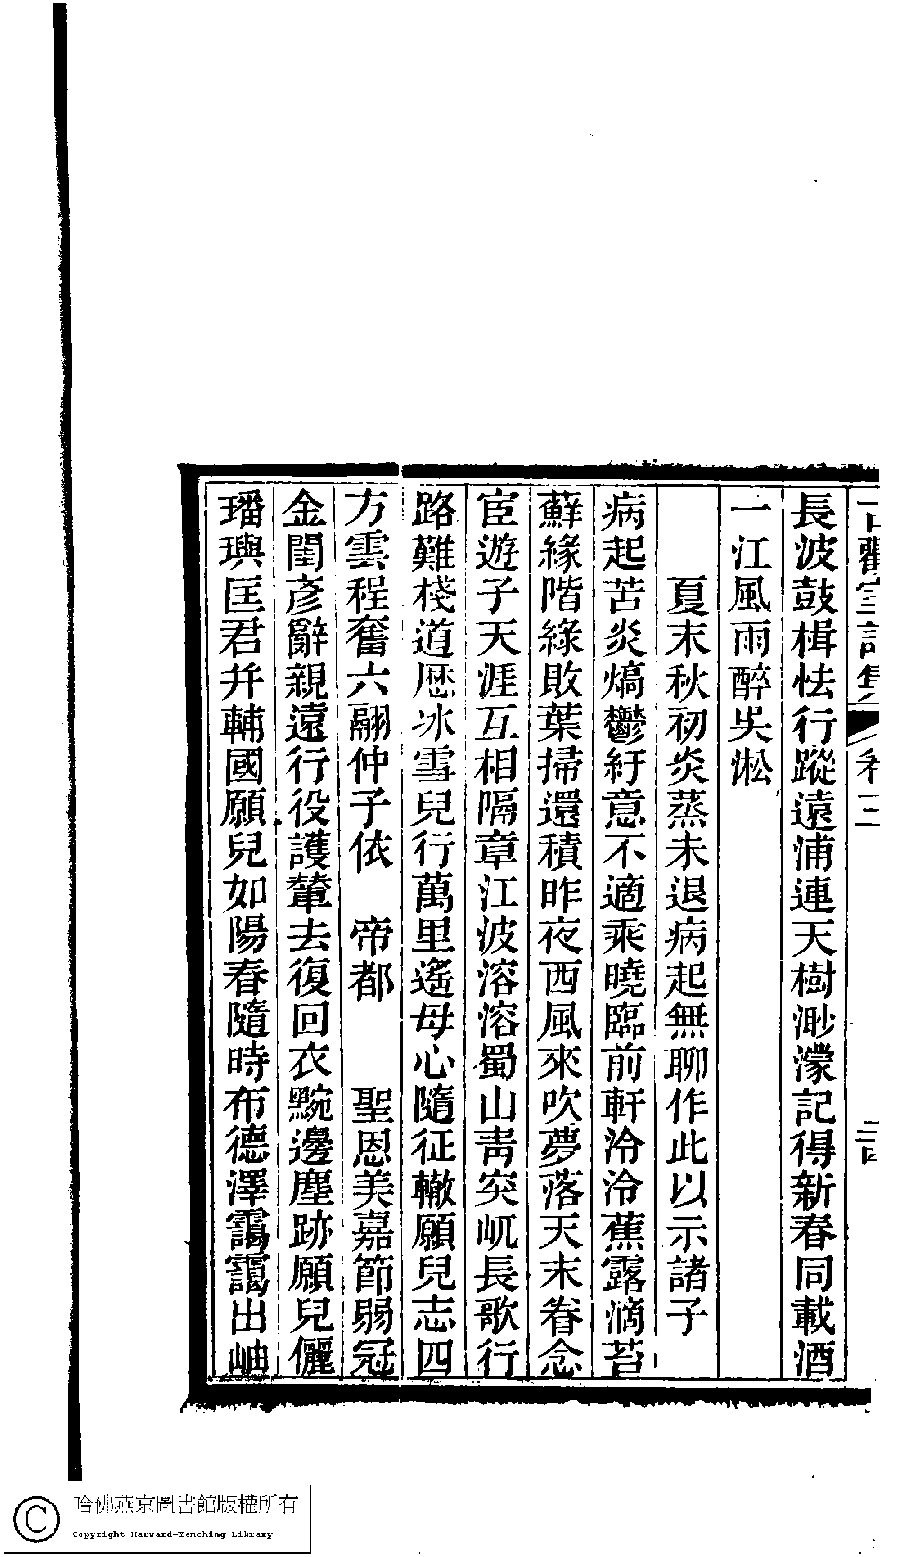 長波鼓楫怯行蹤遠浦連天樹渺濛記得新春同載酒
一江風雨醉吳淞
夏末秋初炎蒸未退病起無聊作此以示諸子
病起苦炎熇鬱紆意不適乘曉臨前軒泠泠蕉露滴苔
蘇緣階綠敗葉掃還積昨夜西風來吹夢落天末眷念
宦遊子天涯互相隔章江波溶溶蜀山靑突屼長歌行
路難棧道歷冰雪兒行萬里遙母心隨征轍願兒志四
方雲程奮六翮仲子依 帝都 聖恩美嘉節弱冠
金閨彥辭親遠行役護輦去復回衣黦邊塵跡願兒儷
璠璵匡君幷輔國願兒如陽春隨時布德澤靄靄出岫
卷三
哈佛燕京圖書館版權所有
Copyright Harvard-Yenching Library